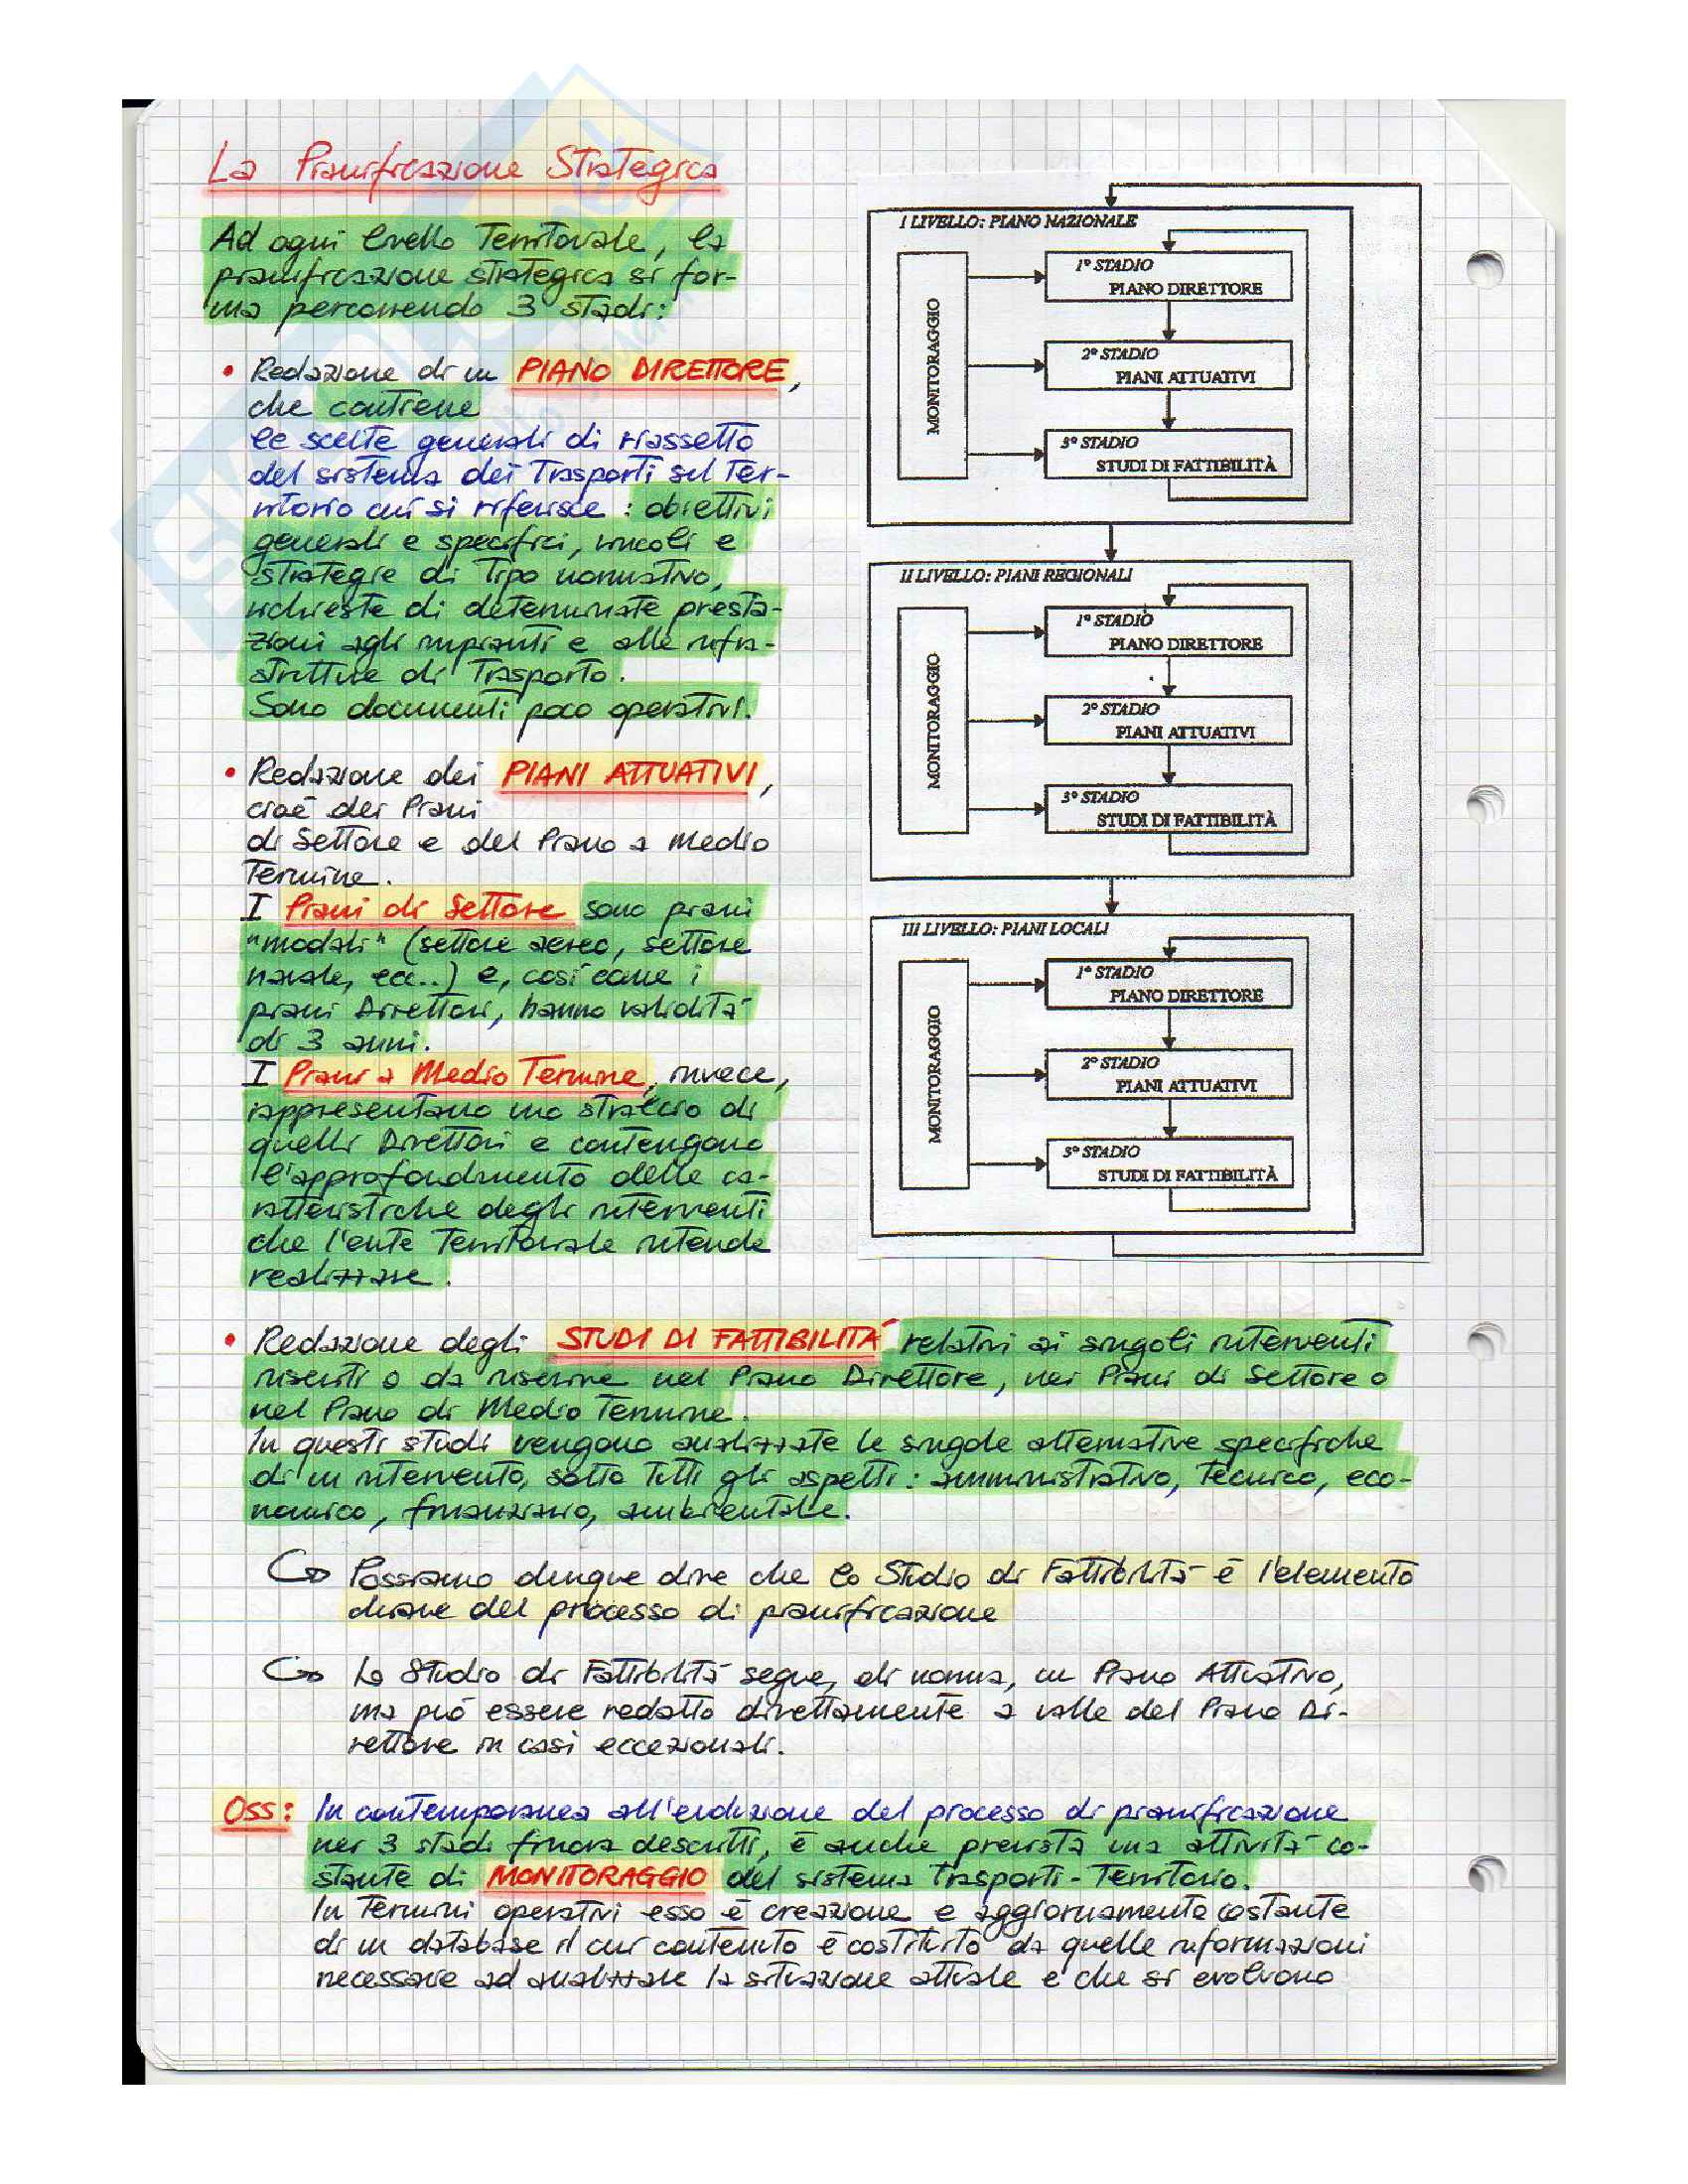 La Pianificazione Strategica
Ad ogni livello Territoriale, la
pianificazione strategica si for-
ma percorrendo 3 stadi:
• Redazione di un PIANO DIRETTORE,
che contiene
le scelte generali di riassetto
del sistema dei Trasporti sul Ter-
ritorio cui si riferisce : obiettivi
generali e specifici, vincoli e
strategie di Tipo normativo,
richieste di determinate presta-
zioni agli impianti e alle infra-
strutture di Trasporto.
Sono documenti poco operativi.
• Redazione dei PIANI ATTUATIVI,
cioè dei Piani
di Settore e del Piano a Medio
Termine.
I Piani di Settore sono piani
"modali" (settore aereo, settore
navale, ecc..) e, così come i
piani Direttori, hanno validità
di 3 anni.
I Piani a Medio Termine, invece,
rappresentano uno stralcio di
quelli Direttori e contengono
l'approfondimento delle ca-
ratteristiche degli interventi
che l'ente Territoriale intende
realizzare.
I LIVELLO: PIANO NAZIONALE
MONITORAGGIO
1° STADIO
PIANO DIRETTORE
2° STADIO
PIANI ATTUATIVI
3° STADIO
STUDI DI FATTIBILITÀ
II LIVELLO: PIANI REGIONALI
MONITORAGGIO
1° STADIO
PIANO DIRETTORE
2° STADIO
PIANI ATTUATIVI
3° STADIO
STUDI DI FATTIBILITÀ
III LIVELLO: PIANI LOCALI
MONITORAGGIO
1° STADIO
PIANO DIRETTORE
2° STADIO
PIANI ATTUATIVI
3° STADIO
STUDI DI FATTIBILITÀ
• Redazione degli STUDI DI FATTIBILITÁ relativi ai singoli interventi
inseriti o da inserire nel Piano Direttore, nei Piani di Settore o
nel Piano di Medio Termine.
In questi studi vengono analizzate le singole alternative specifiche
di un intervento, sotto Tutti gli aspetti : amministrativo, Tecnico, eco-
nomico, finanziario, ambientale.
Possiamo dunque dire che lo Studio di Fattibilità è l'elemento
chiave del processo di pianificazione
Lo Studio di Fattibilità segue, di norma, un Piano Attuativo,
ma può essere redatto direttamente a valle del Piano Di-
rettore in casi eccezionali.
Oss: In contemporanea all'evoluzione del processo di pianificazione
nei 3 stadi finora descritti, è anche prevista una attività co-
stante di MONITORAGGIO del sistema Trasporti-Territorio.
In Termini operativi esso è creazione e aggiornamento costante
di un database il cui contenuto è costituito da quelle informazioni
necessarie ad analizzare la situazione attuale e che si evolvono